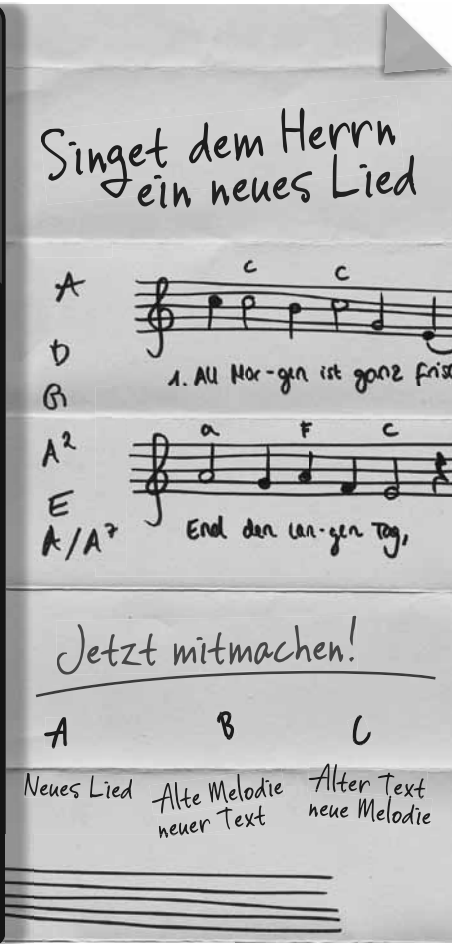 Singet dem Herrn
ein neues Lied
A
C C
D
1. All Mor-gen ist ganz
A²
a F C
E
End den lan-gen Tag,
A/A⁷
Jetzt mitmachen!
A B C
Neues Lied
Alte Melodie
neuer Text
Alter Text
neue Melodie